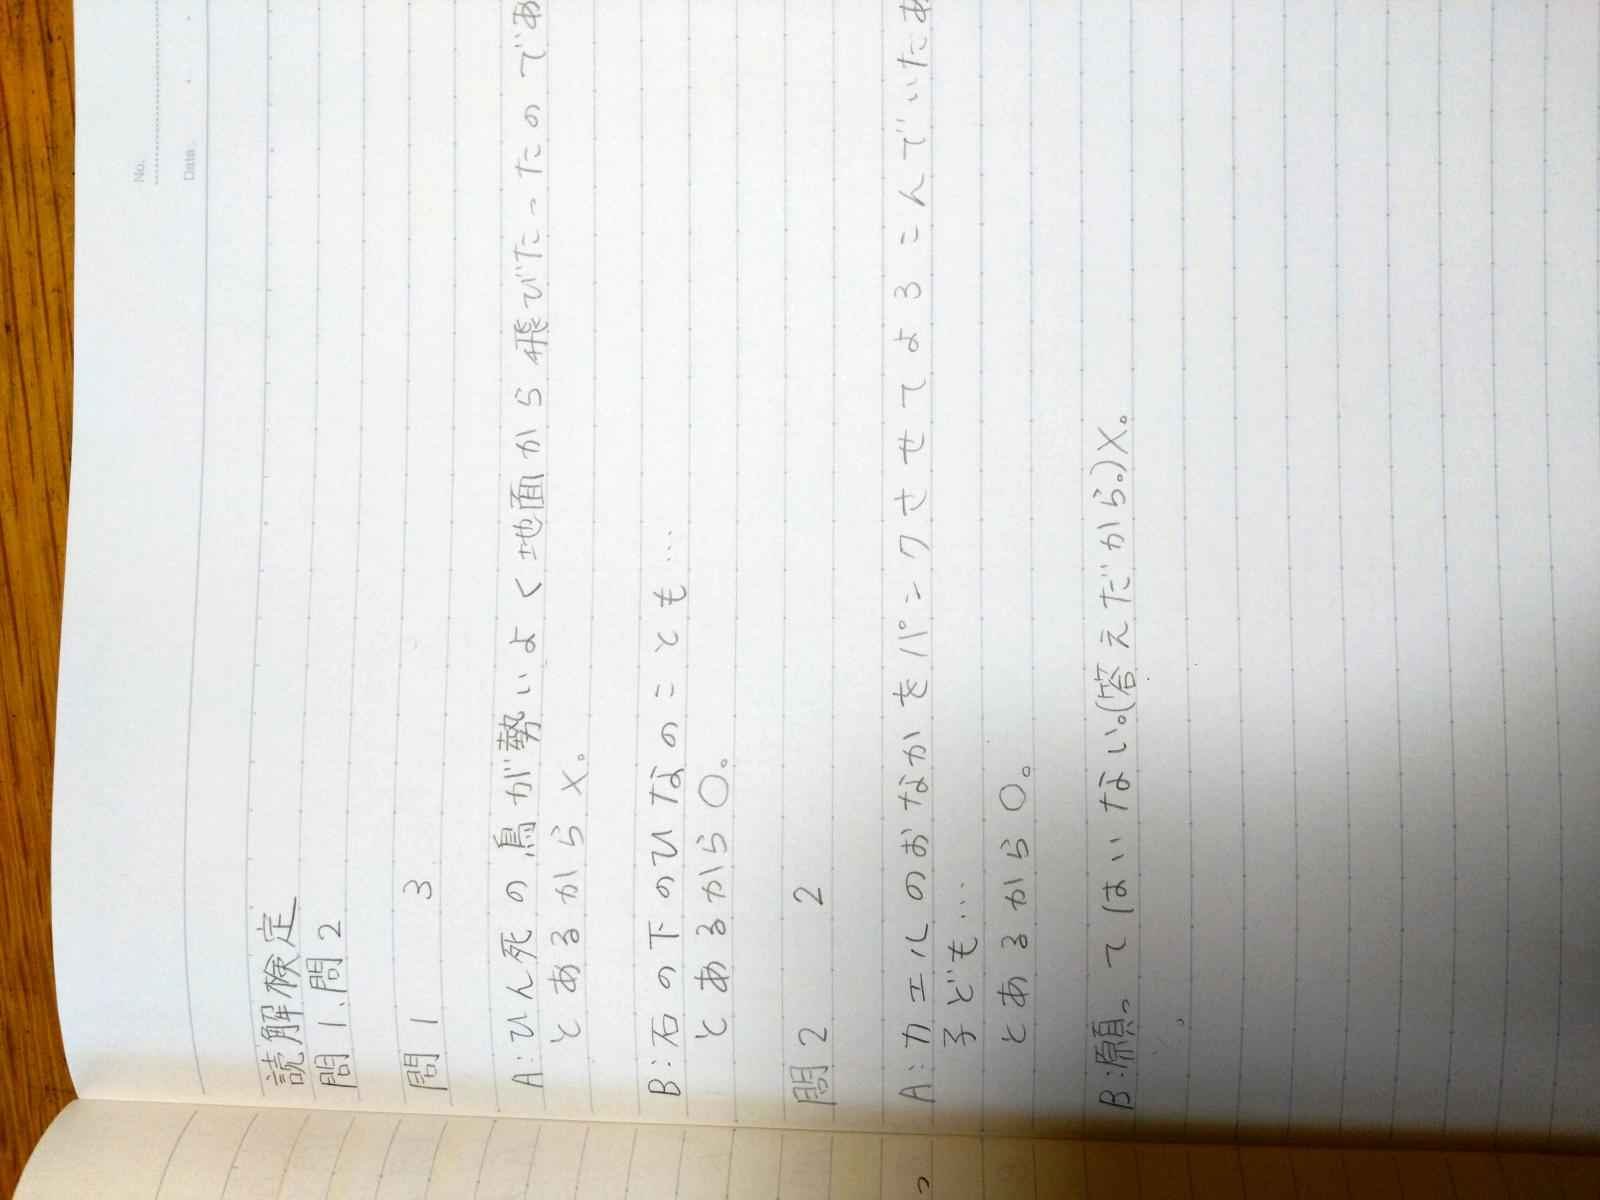 No.
Date
読解検定
問1、問2
問1 3
A:ひん死の鳥が勢いよく地面から飛びたったのであ
とあるから×。
B:石の下のひなのことも…
とあるから○。
問2 2
A:カエルのおなかをパンクさせてよろこんでいたあ
子ども…
とあるから○。
B:願ってはいない。(答えだから。)×。